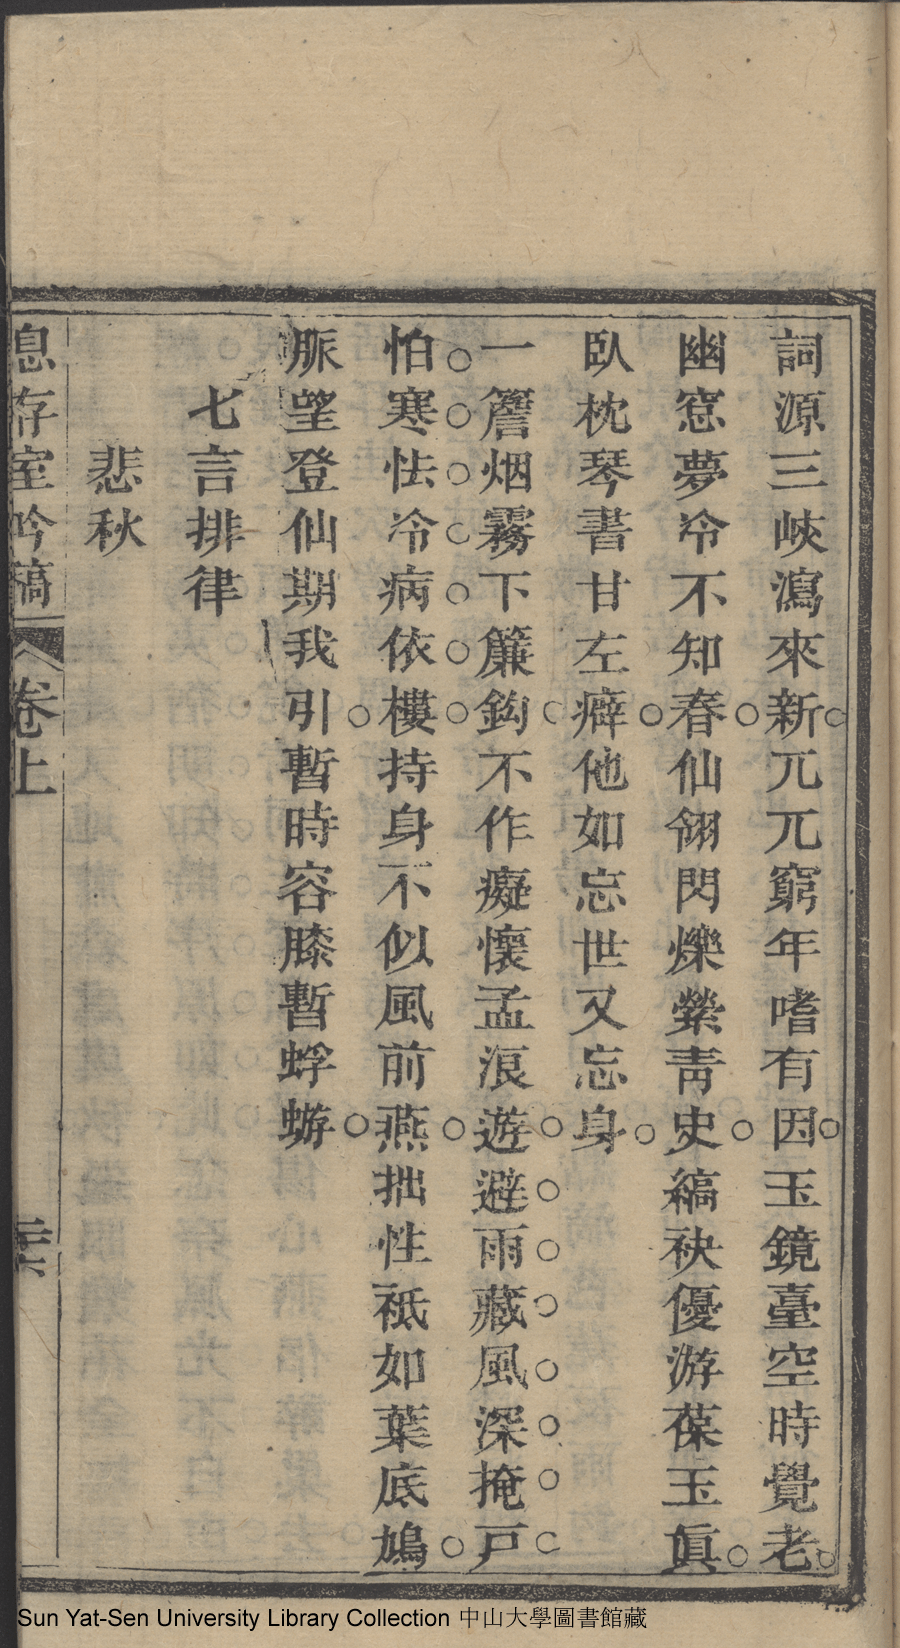 詞源三峽瀉來新兀兀窮年嗜有因玉鏡臺空時覺老
幽窓夢冷不知春仙翎閃爍縈靑史縞袂優游葆玉眞
臥枕琴書甘左癖他如忘世又忘身
一簷烟霧下簾鈎不作癡懷孟浪遊避雨藏風深掩戸
怕寒怯冷病依樓持身不似風前燕拙性祗如葉底鳩
脈望登仙期我引暫時容膝暫蜉蝣
七言排律
悲秋
息存室吟稿 卷上 二六
Sun Yat-Sen University Library Collection 中山大學圖書館藏